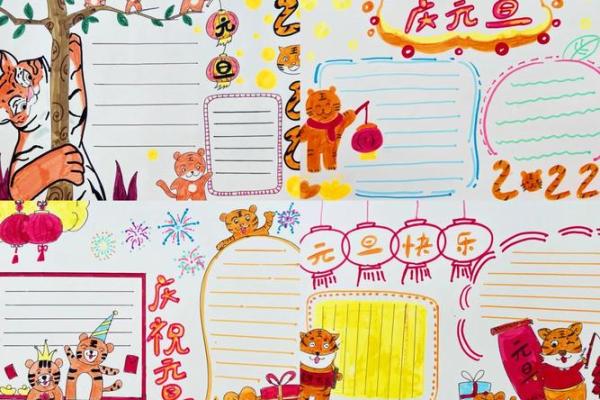 元
旦
庆元旦
2022
庆祝元旦
元旦快乐
元旦